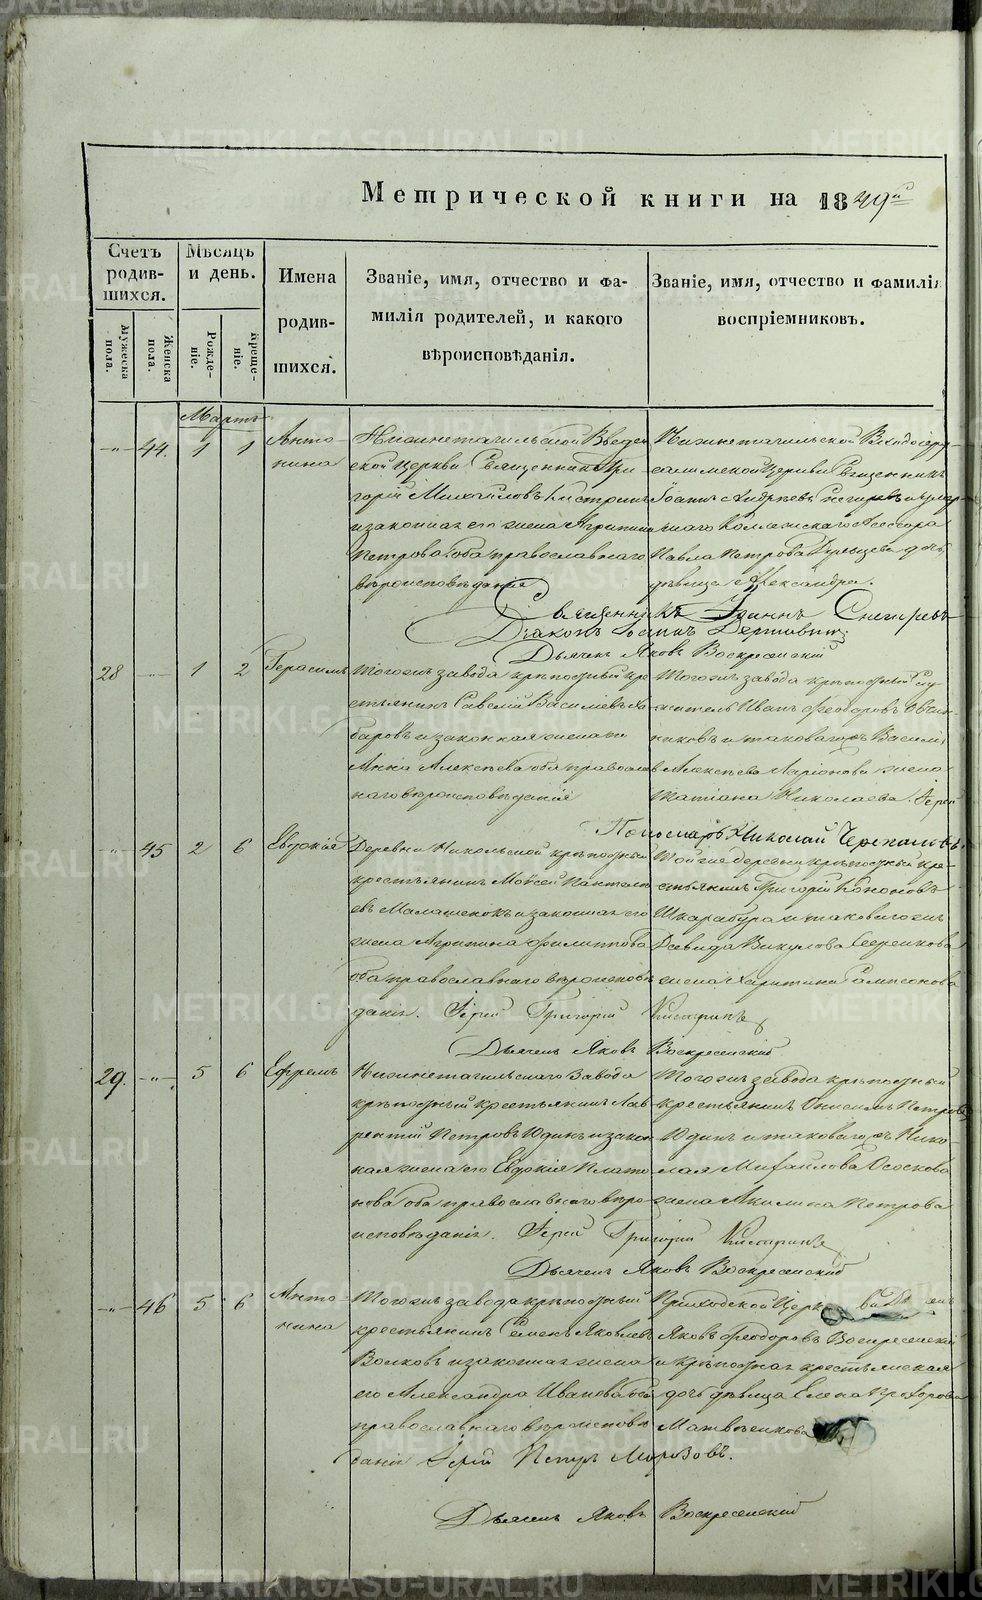 Метрической книги на 1849й
Счетъ родив-шихся.
Мѣсяцъ и день.
Имена родив-шихся.
Званіе, имя, отчество и фа-
милія родителей, и какого
вѣроисповѣданія.
Званіе, имя, отчество и фамилія
воспріемниковъ.
Мужеска пола.
Женска пола.
Рожде-ніе.
Креще-ніе.
Мартъ
44. 1 1 Анто-
нина
Нижнетагильской Введен
ской Церкви Священникъ Гри
горій Михайловъ
и законная его жена Агрипина
Петрова оба православнаго
вѣроисповѣданія
Нижнетагильской Входоіеру-
салимской Церкви Священникъ
Іоаннъ Андреевъ Снегиревъ и умер-
шаго Коллежскаго Ассесора
Павла Петрова дочь
дѣвица Александра.
Священникъ Іоаннъ Снегиревъ
Діаконъ Іоаннъ
Дьячекъ Яковъ Воскресенскій
28 1 2 Герасимъ
Тогожъ завода крѣпостный кре
стьянинъ Савелій Василіевъ Ха-
баровъ и законная жена
Анна Алексѣева оба православ
наго вѣроисповѣданія
Тогожъ завода крѣпостный Слу
житель Иванъ Феодоровъ Овчин-
никовъ и таковагожъ Василія
Алексѣева Ларіонова жена
Татіана Николаева. Іерей
Пономарь Николай Черепановъ.
45 2 6 Евдокія
Деревни Никольской крѣпостный
крестьянинъ Моисей Пантеле
евъ Малашенокъ и законная его
жена Агрипина Филиппова
оба православнаго вѣроисповѣ
данія. Іерей Григорій
Той же деревни крѣпостный кре-
стьянинъ Григорій Кононовъ
Шкарабура и таковагожъ
Давида Викулова
жена Харитина Сампсонова
Дьячекъ Яковъ Воскресенскій
29. 5 6 Ефремъ
Нижнетагильскаго Завода
крѣпостный крестьянинъ Лав-
рентій Петровъ Юдинъ и закон
ная жена его Евдокія Плато
нова оба православнаго вѣро
исповѣданія. Іерей Григорій
Тогожъ завода крѣпостный
крестьянинъ Онисимъ Петровъ
Юдинъ и таковагожъ Нико-
лая Михайлова Осокова
жена Акилина Петрова
Дьячекъ Яковъ Воскресенскій
46 5 6 Анто-
нина
Тогожъ завода крѣпостный
крестьянинъ Семенъ Яковлевъ
Волковъ и законная жена
его Александра Иванова оба
православнаго вѣроисповѣ
данія Іерей Петръ Морозовъ.
Приходской Церкви
Яковъ Феодоровъ Воскресенскій
и крѣпостная крестьянская
дочь дѣвица Елена Прохорова
Матвѣенкова
Дьячекъ Яковъ Воскресенскій